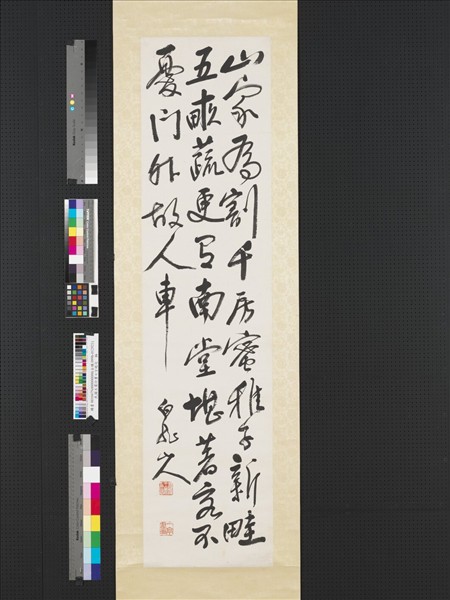 山家為割千房蜜稚子新畦
五畝蔬更有南堂堪著客不
憂門外故人車
山人